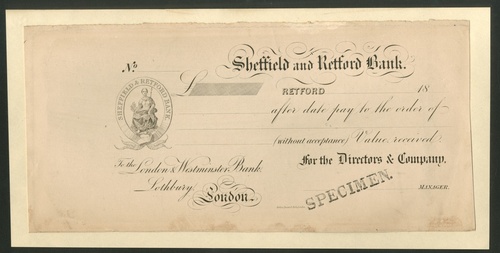 Sheffield and Retford Bank.
No
SHEFFIELD & RETFORD BANK
£
RETFORD 18
after date pay to the order of
(without acceptance) Value received.
To the London & Westminster Bank.
For the Directors & Company,
Lothbury
London.
SPECIMEN.
MANAGER.